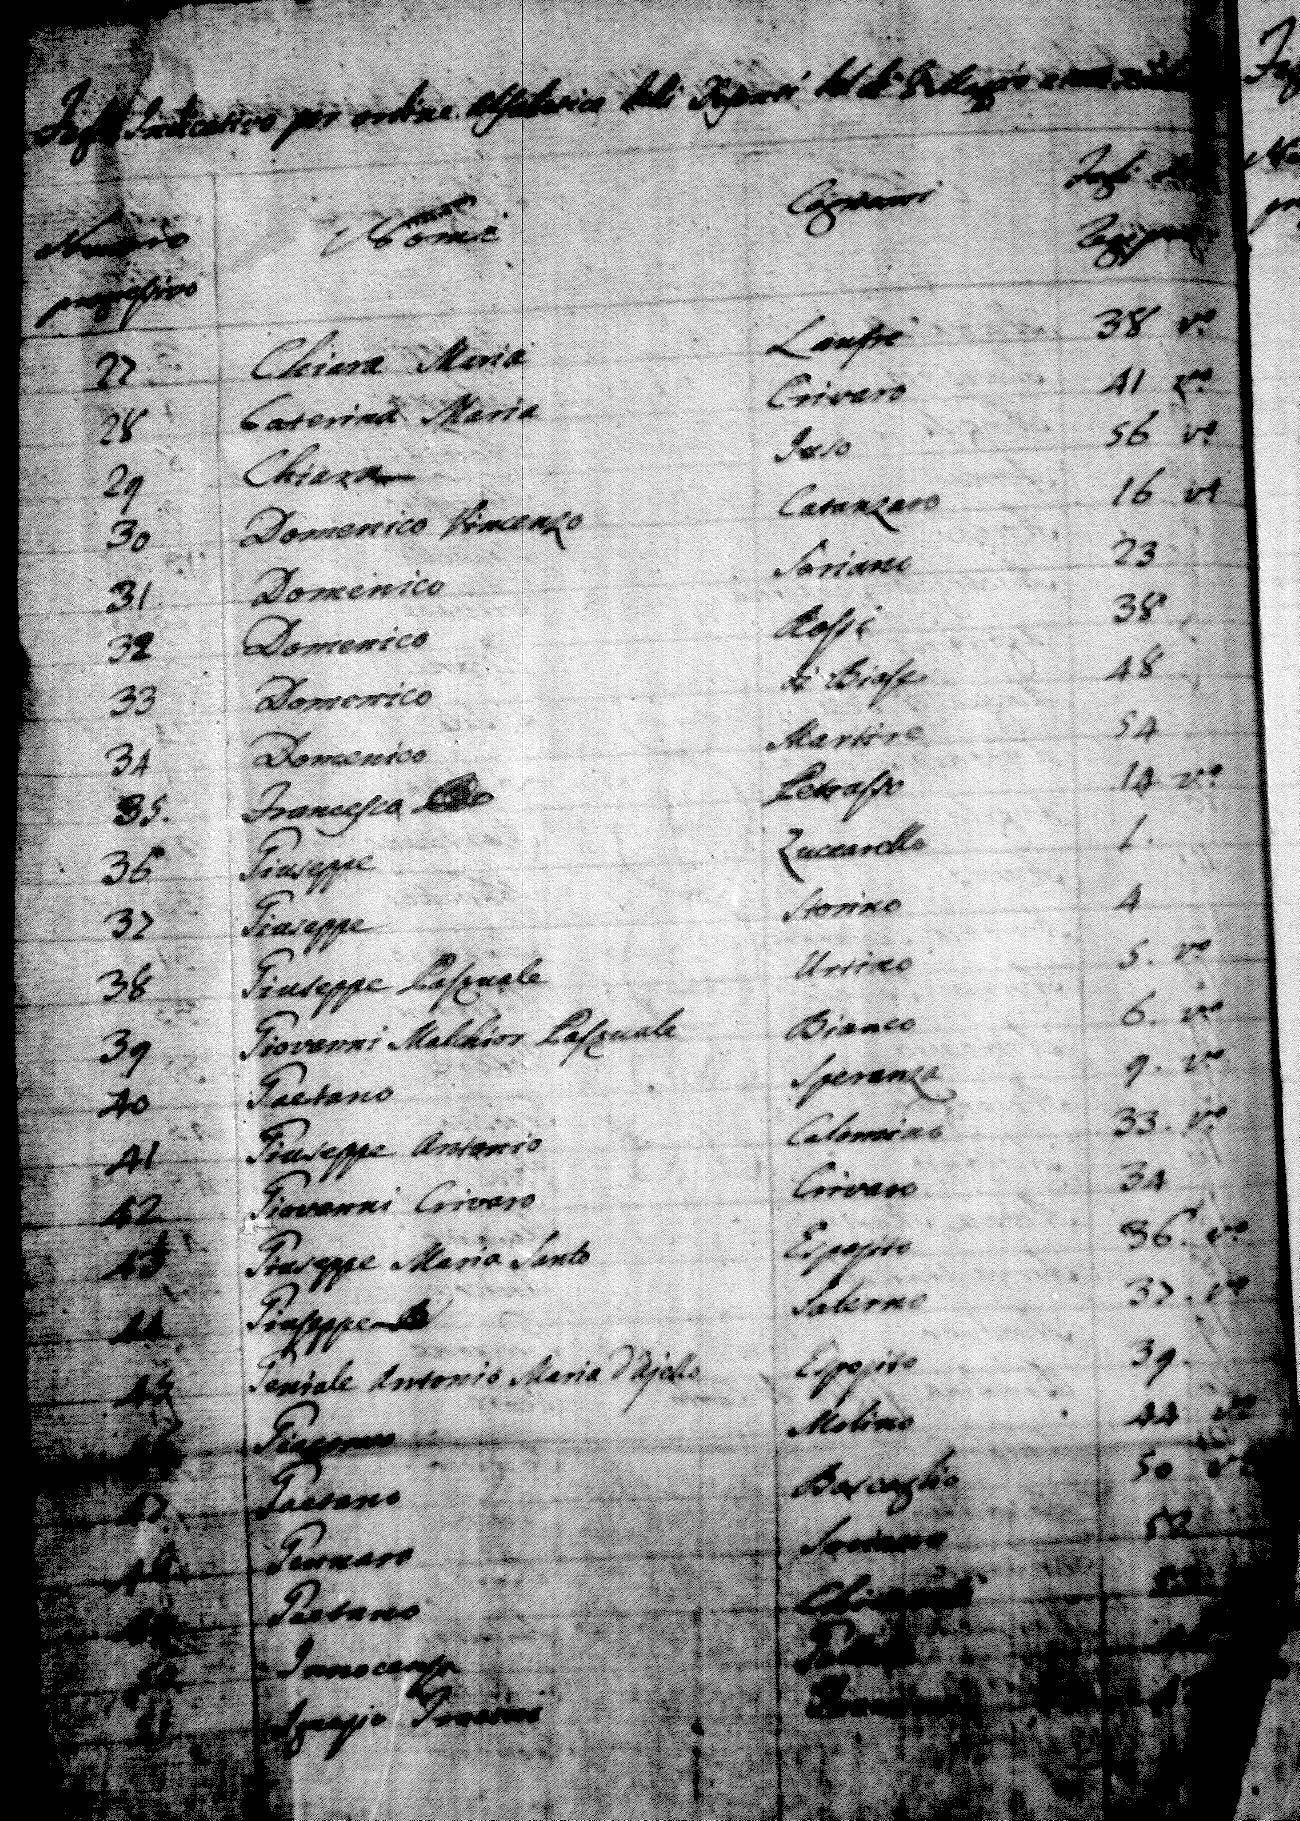 Indicativo per ordine alfabetico delli
Numero progressivo Nomi Cognomi Fogli
27 Chiara Maria Laufre 38 vo
28 Caterina Maria Crivaro 41 vo
29 Chiara Iuso 56 vo
30 Domenico Vincenzo Catanzaro 16 vo
31 Domenico Soriano 23
32 Domenico Rossi 38
33 Domenico di Biase 48
34 Domenico Martire 54
35. Francesco Petrasso 14 vo
36 Giuseppe Zuccarello 1.
37 Giuseppe Storino 4
38 Giuseppe Pasquale Ursino 5. vo
39 Giovanni Malchior Pasquale Bianco 6. vo
40 Gaetano Speranza 9. vo
41 Giuseppe Antonio Calomino 33. vo
42 Giovanni Crivaro Crivaro 34
43 Giuseppe Maria Santo Esposito 36. vo
44 Giuseppe Salerno 37. vo
45 Geniale Antonio Maria D'Ajello Esposito 39.
Giacomo Molino 44 vo
47 Gaetano Bascaglio 50 vo
48 Gennaro Soriano 52
Gaetano
Innocenza
51 Ignazio